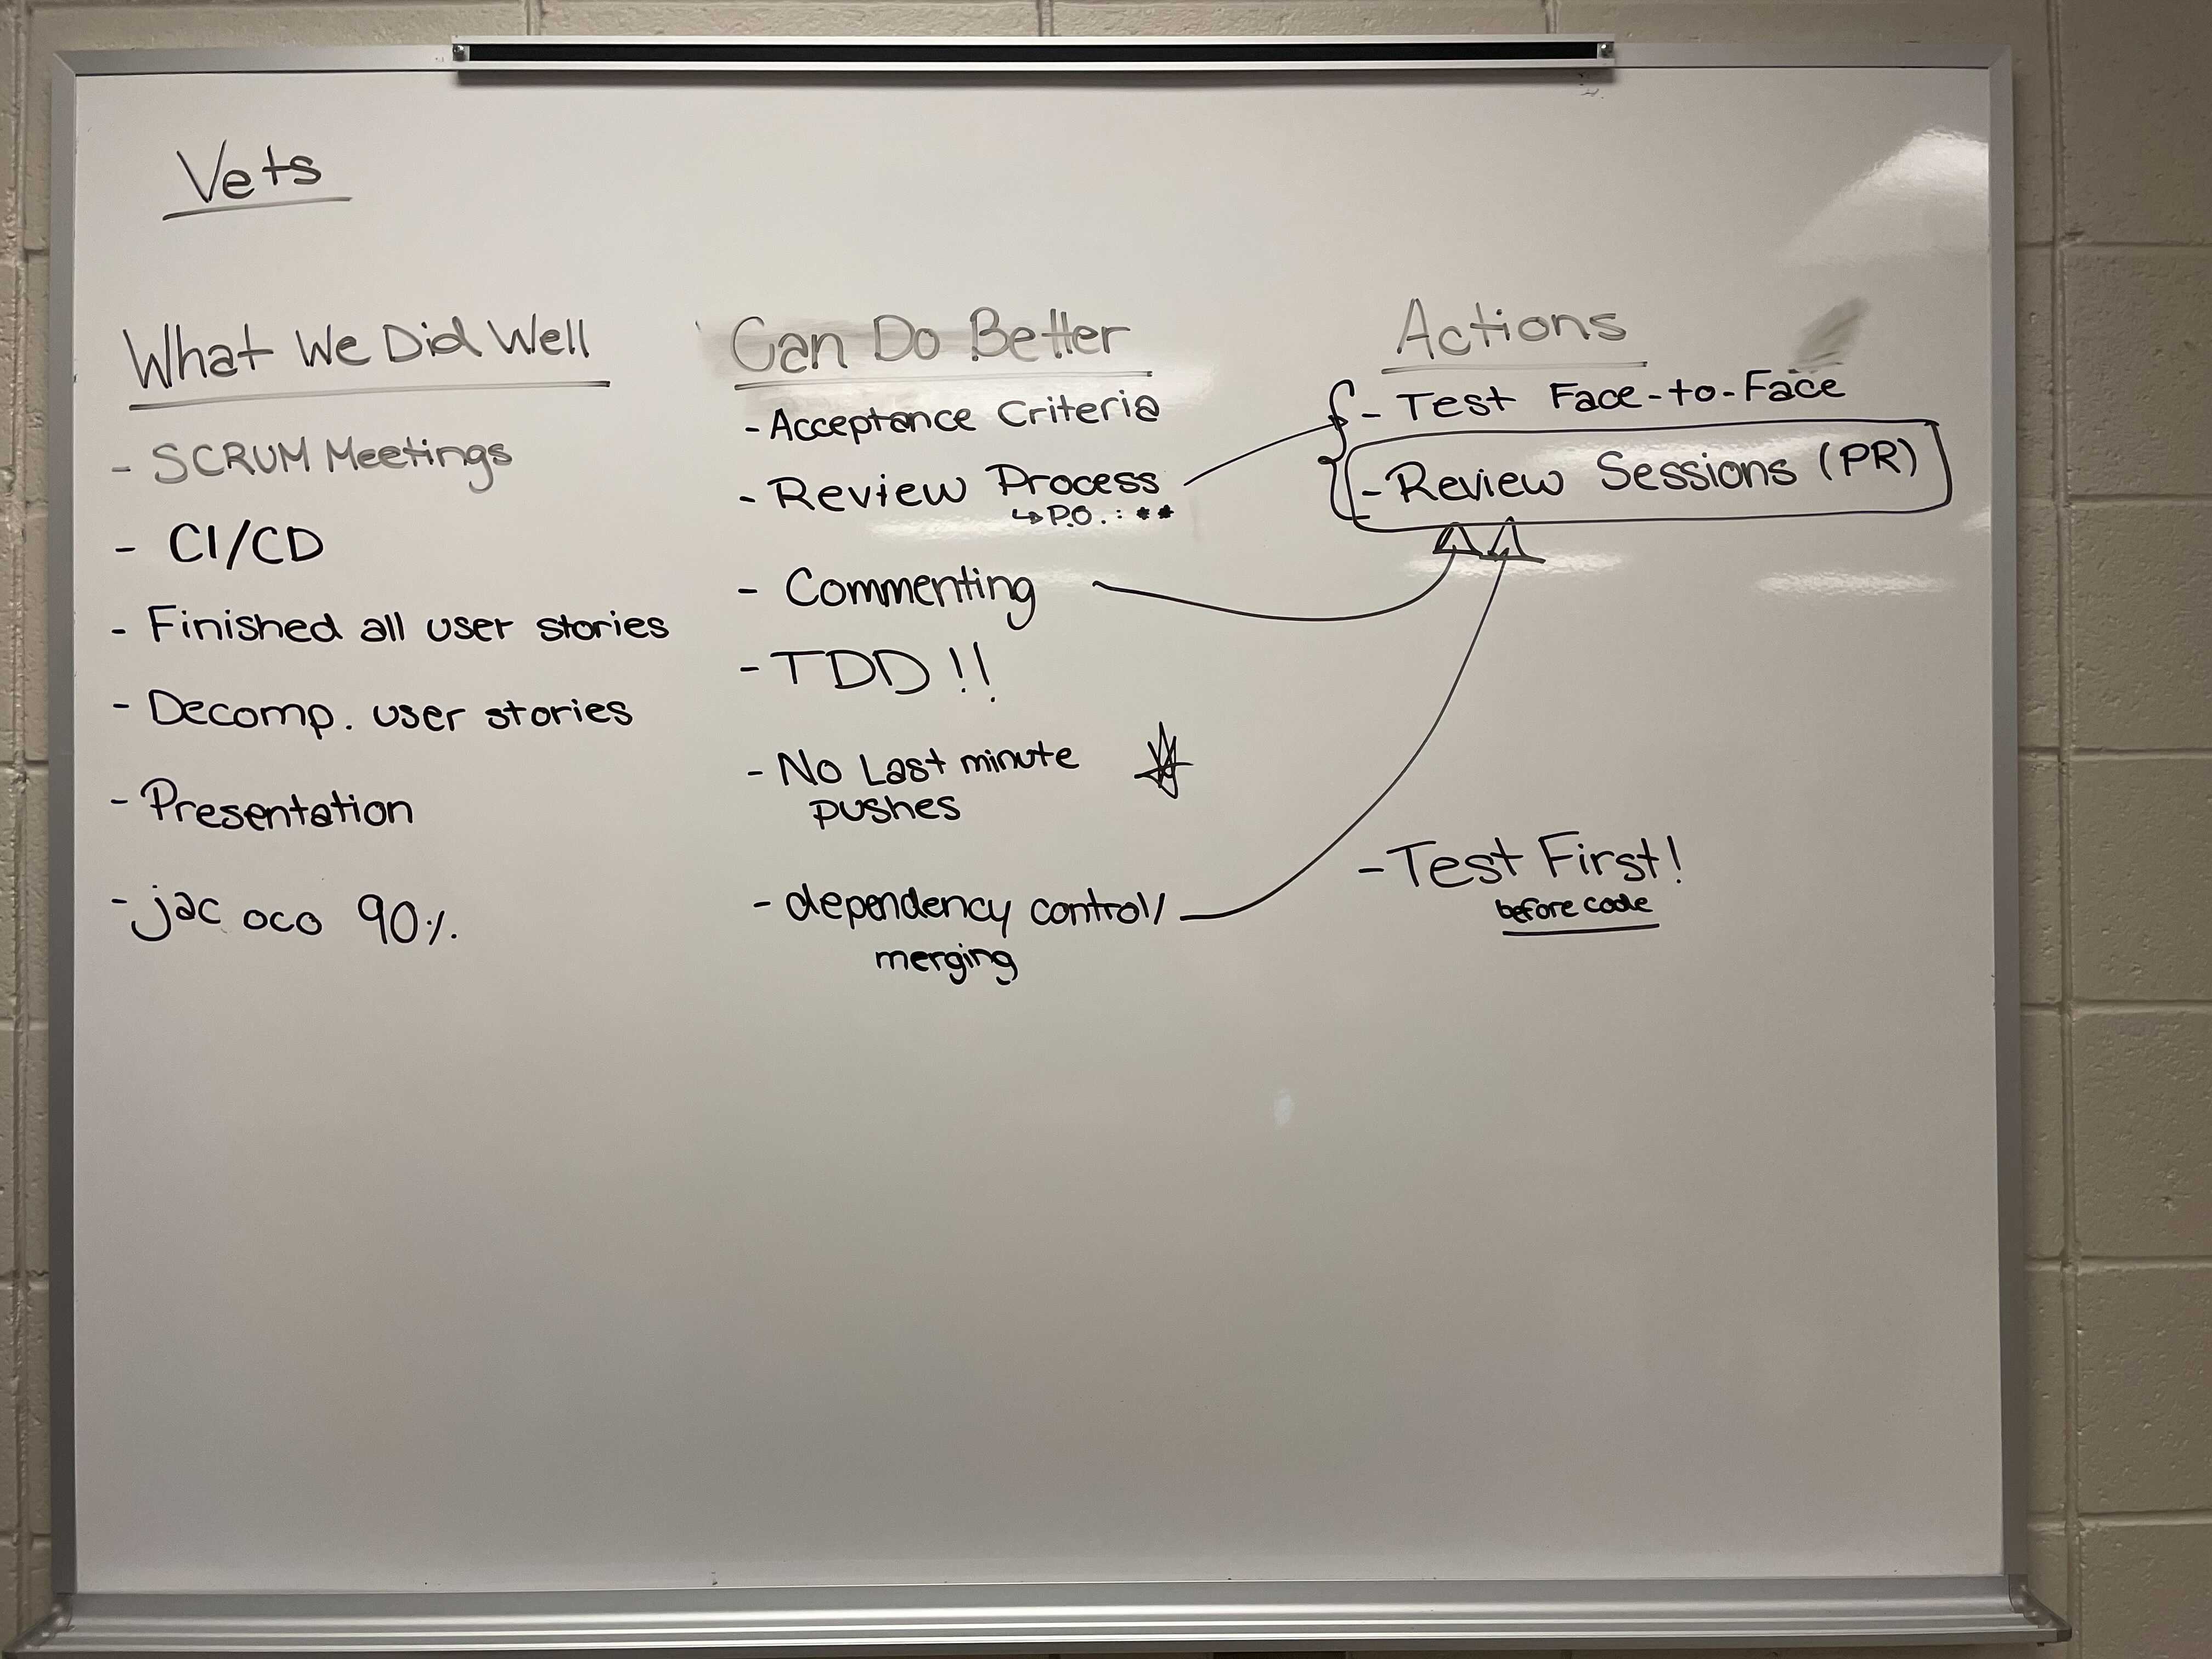 Vets
What We Did Well
- SCRUM Meetings
- CI/CD
- Finished all user stories
- Decomp. user stories
- Presentation
- jac oco 90%
Can Do Better
- Acceptance Criteria
- Review Process
↳ P.O. : **
- Commenting
- TDD !!
- No Last minute
pushes
- dependency control/
merging
Actions
- Test Face-to-Face
- Review Sessions (PR)
- Test First!
before code